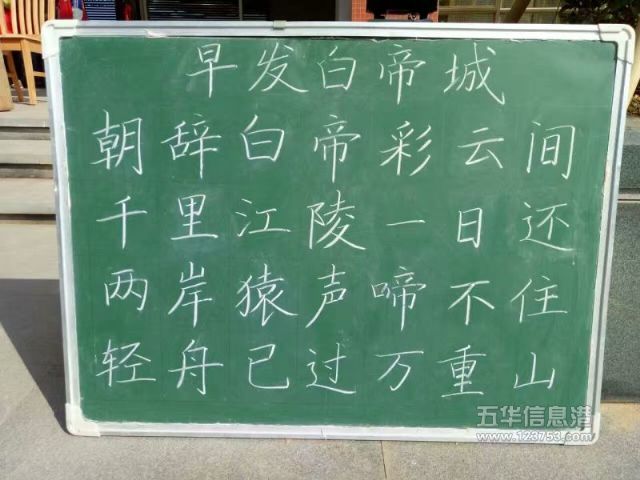 早发白帝城
朝辞白帝彩云间
千里江陵一日还
两岸猿声啼不住
轻舟已过万重山
五华信息港
www.123753.com